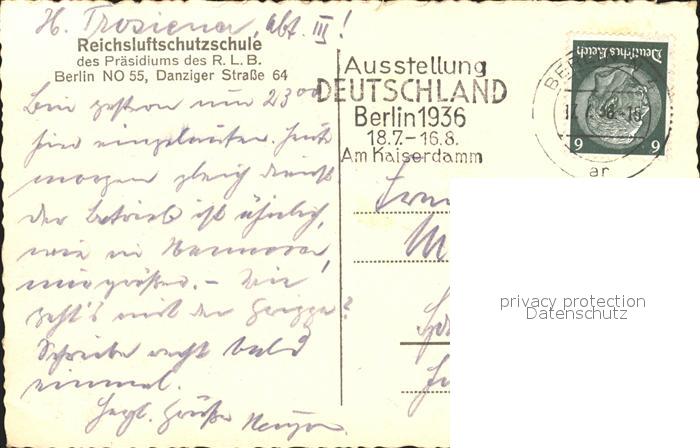 H. Trosiener, Abt. III!
Reichsluftschutzschule
des Präsidiums des R. L. B.
Berlin NO 55, Danziger Straße 64
Bin gestern um 23⁰⁰
hier eingelaufen. Heute
morgen gleich Dienst
der Betrieb ist ähnlich,
wie in Hannover,
nur größer. – Wie
geht's mit der Grippe?
Schreibe recht bald
einmal.
Herzl. Grüße
Ausstellung
DEUTSCHLAND
Berlin 1936
18.7.-16.8.
Am Kaiserdamm
BERLIN
36.-15
ar
Deutsches Reich
6 6
privacy protection
Datenschutz